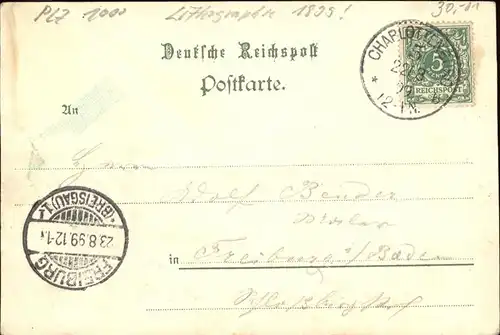 PLZ 1000 Lithographie 1899! 30,-
Deutsche Reichspost
Postkarte.
CHARLOTTEN
22/8
99
12-1N.
5
REICHSPOST
An
Herrn
Adolf Bender
in Freiburg i/Baden
FREIBURG
23.8.99.12-1.N
*(BREISGAU)1*